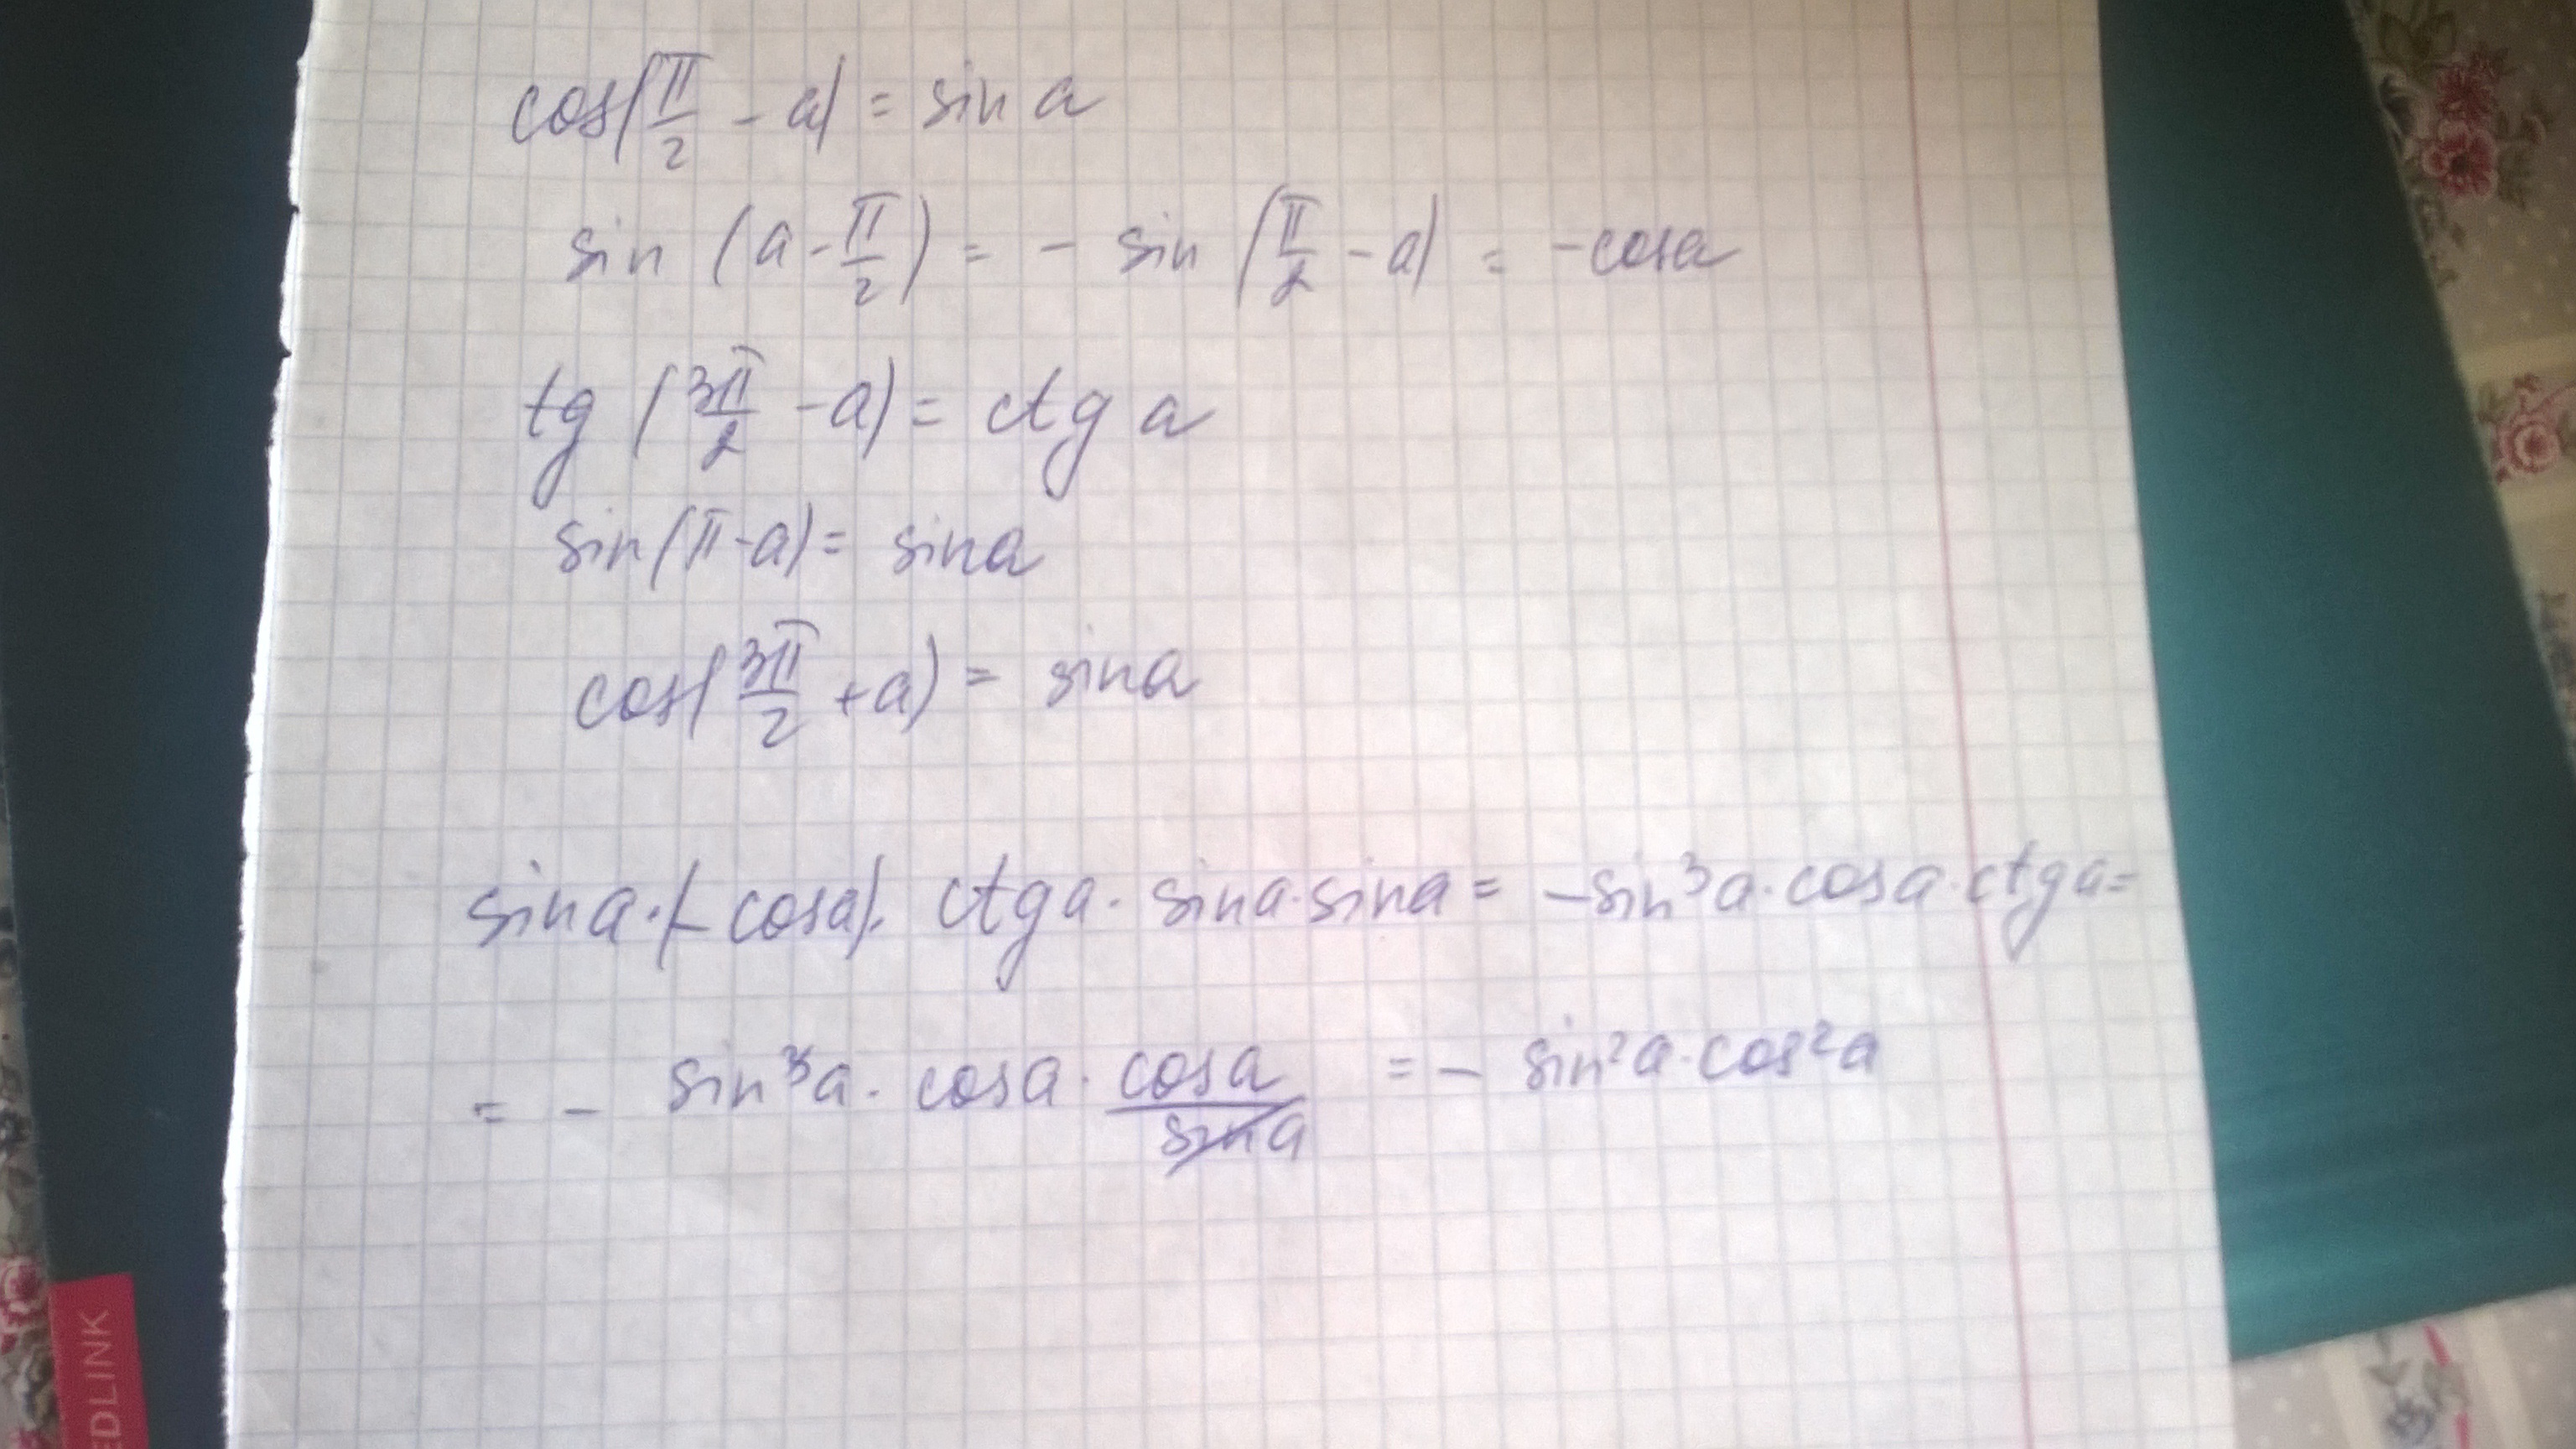 cos(π/2 - a) = sin a
sin (a - π/2) = - sin (π/2 - a) = -cosa
tg (3π/2 - a) = ctg a
sin(π-a) = sina
cos(3π/2 + a) = sina
sina·(-cosa)· ctga· sina·sina = -sin³a·cosa·ctga=
= - sin³a· cosa· cosa/sina = - sin²a·cos²a
EDLINK